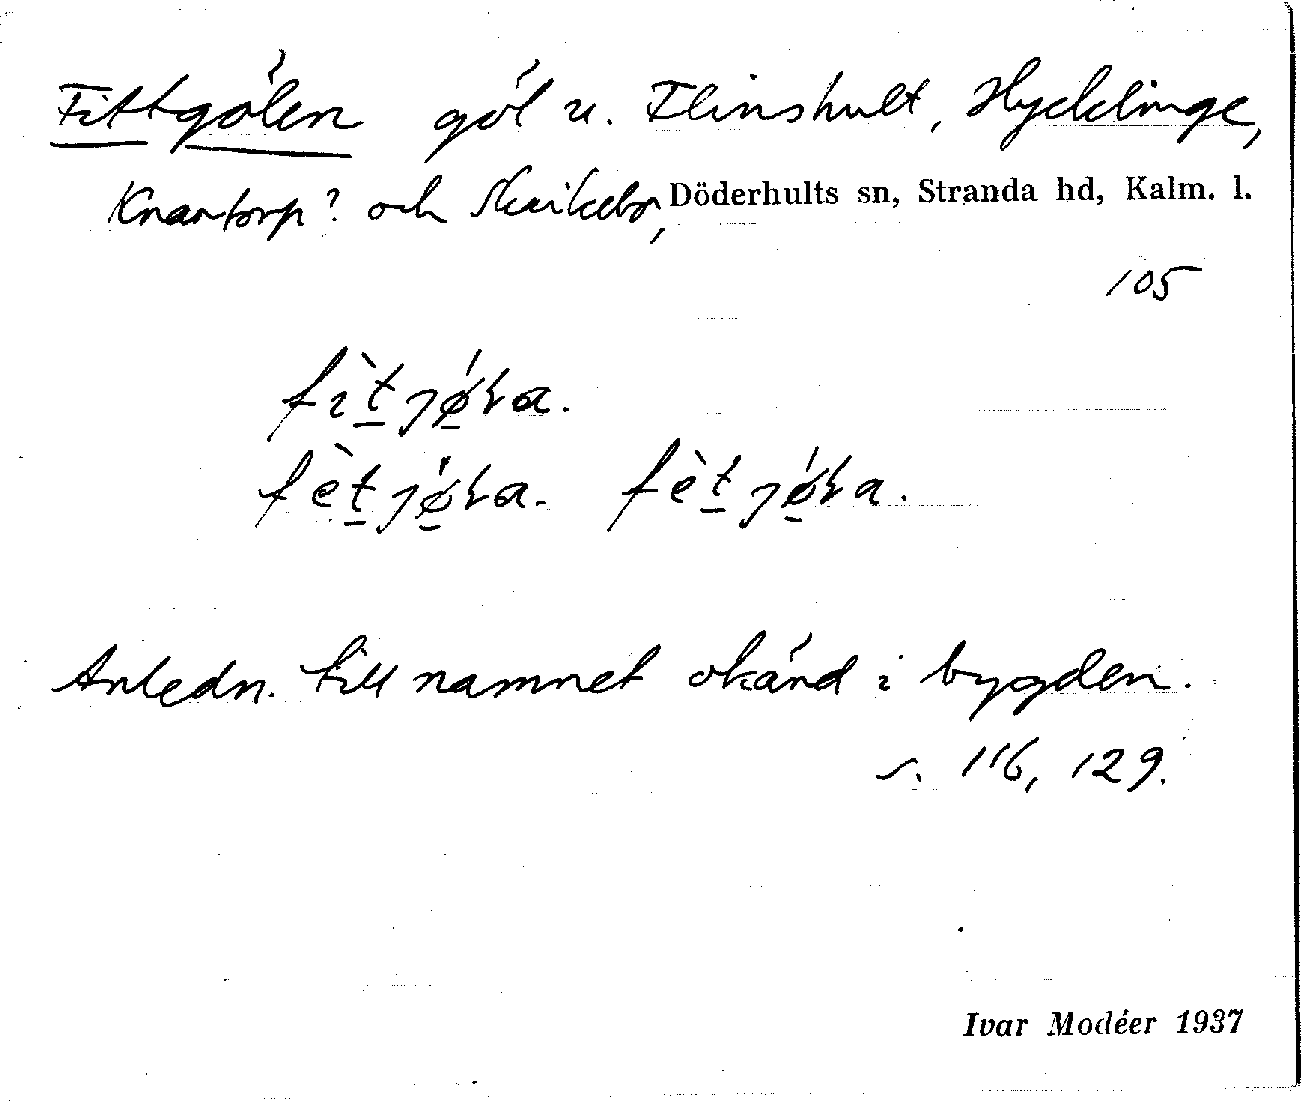 Fittgölen göl u. Flinshult, Hycklinge,
Knartorp? och Skrikebo, Döderhults sn, Stranda hd, Kalm. l.
105
fìt̠jǿ̠ɬa.
fèt̠jǿ̠ɬa. fèt̠jǿ̠ɬa.
Anledn. till namnet okänd i bygden.
s. 116, 129.
Ivar Modéer 1937